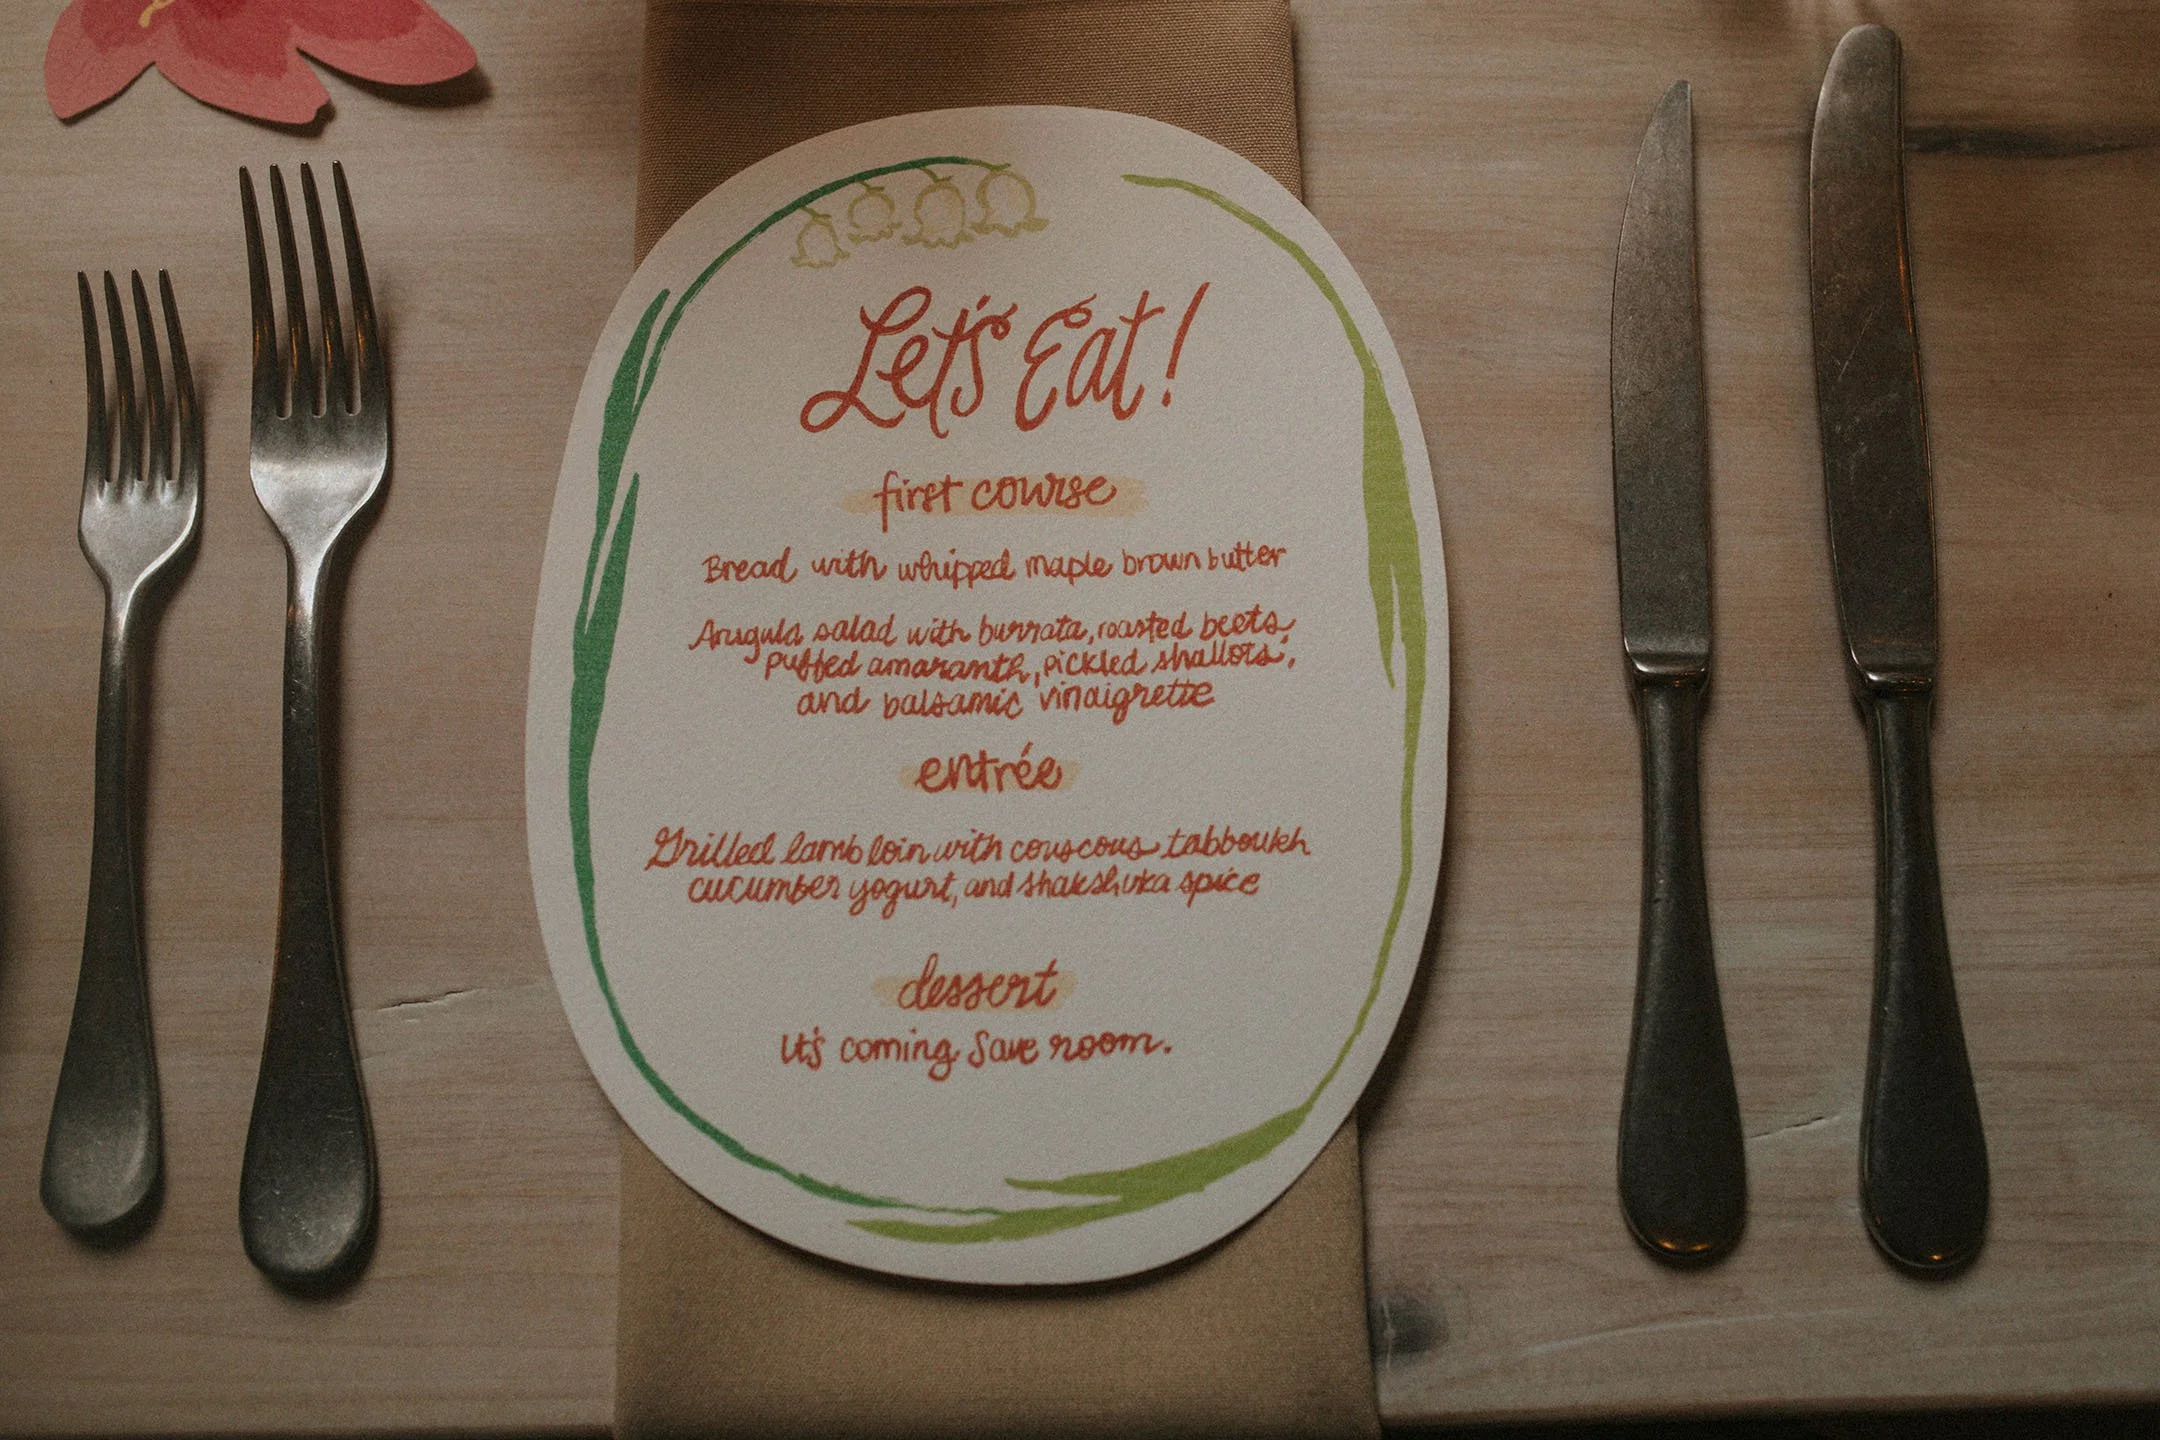 Let's Eat!
first course
Bread with whipped maple brown butter
Arugula salad with burrata, roasted beets,
puffed amaranth, pickled shallots,
and balsamic vinaigrette
entrée
Grilled lamb loin with couscous tabbouleh
cucumber yogurt, and shakshuka spice
dessert
It's coming save room.